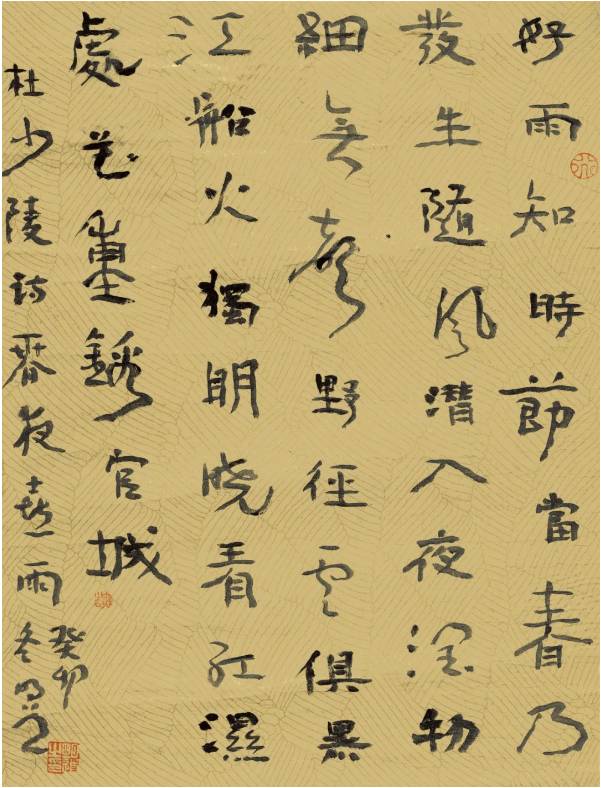 好雨知時節當春乃
發生隨風潛入夜潤物
細無聲野徑云俱黑
江船火獨明曉看紅濕
處花重錦官城
癸卯
杜少陵詩春夜喜雨